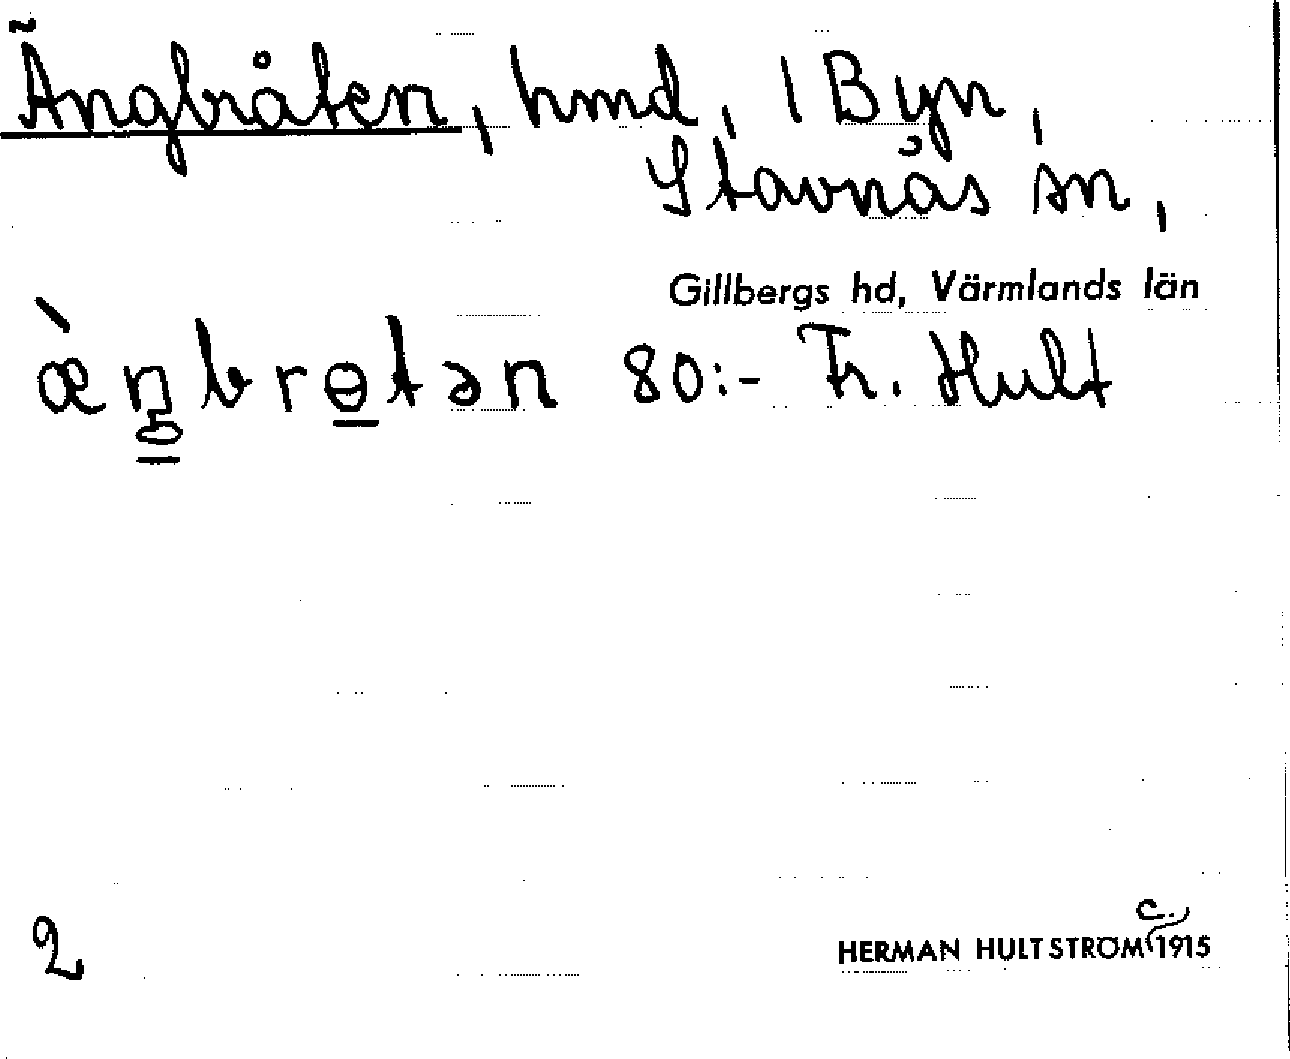 Ängbråten, hmd, 1 Byn,
Stavnäs sn,
Gillbergs hd, Värmlands län
æ̀ŋbrɵtən 80:- Fr. Hult
2
HERMAN HULTSTRÖM c. 1915